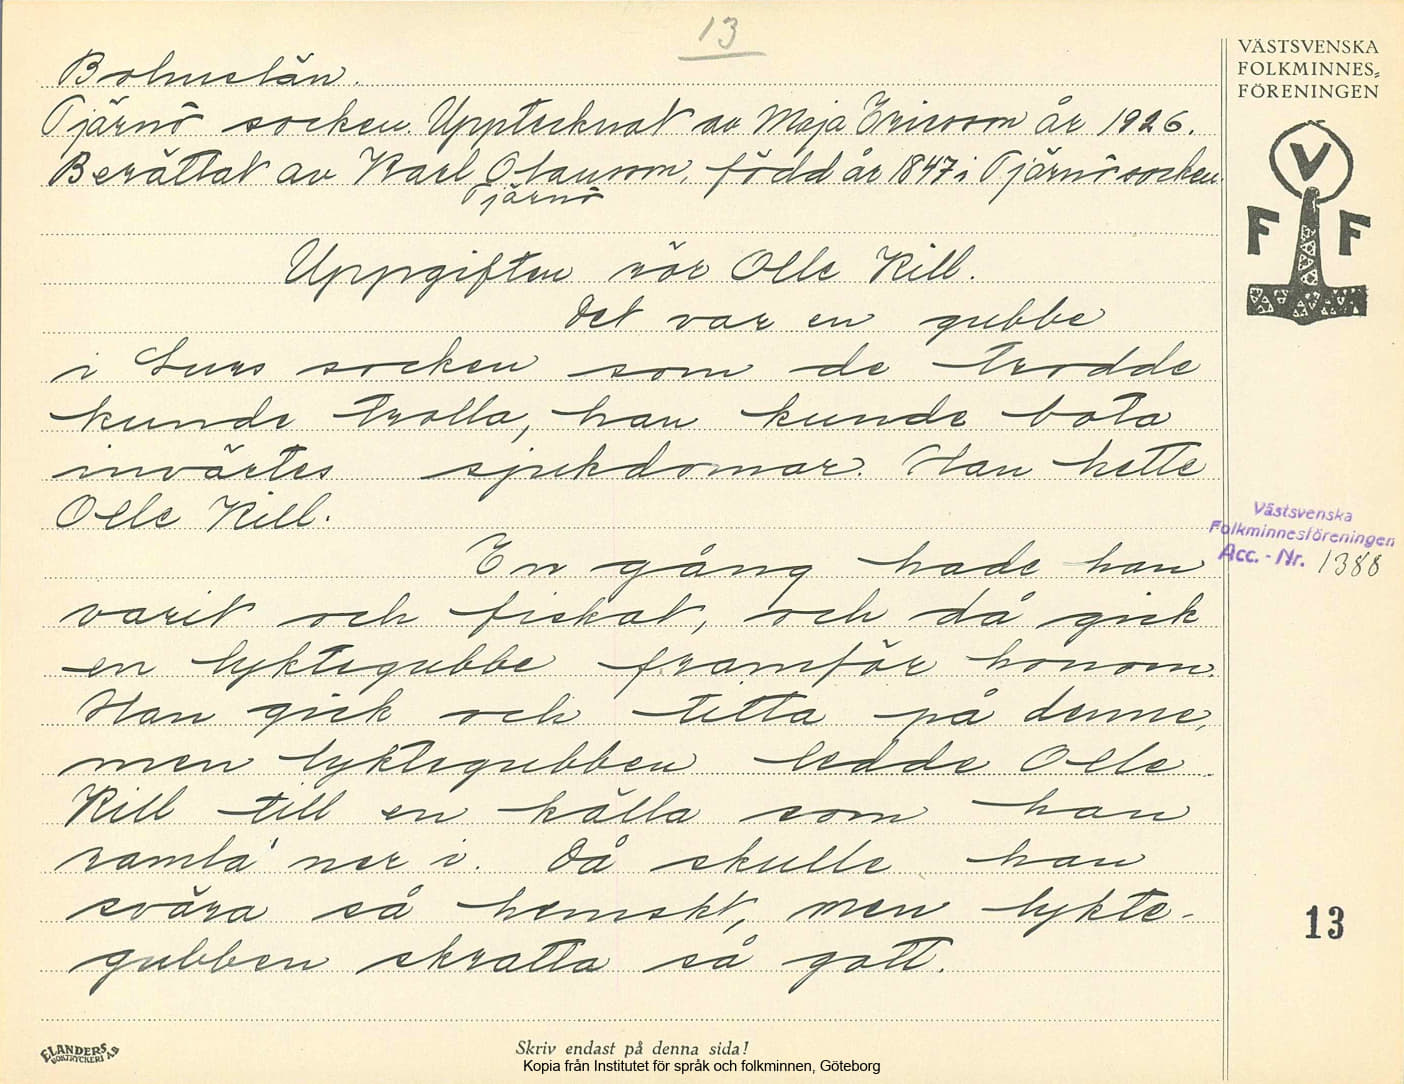 13
Bohuslän.
Tjärnö socken. Upptecknat av Maja Ericson år 1926.
Berättat av Karl Olausson, född år 1847 i Tjärnö socken.
Tjärnö
Uppgiften rör Olle Kill.
Det var en gubbe
i Lurs socken som de trodde
kunde trolla, han kunde bota
invärtes sjukdomar. Han hette
Olle Kill.
En gång hade han
varit och fiskat, och då gick
en lyktegubbe framför honom.
Han gick och titta på denne,
men lyktegubben ledde Olle
Kill till en källa som han
ramla' ner i. Då skulle han
svära så hemskt, men lykte-
gubben skratta så gott.
VÄSTSVENSKA
FOLKMINNES-
FÖRENINGEN
V
F F
Västsvenska
Folkminnesföreningen
Acc. - Nr. 1388
13
ELANDERS
BOKTRYCKERI AB
Skriv endast på denna sida!
Kopia från Institutet för språk och folkminnen, Göteborg